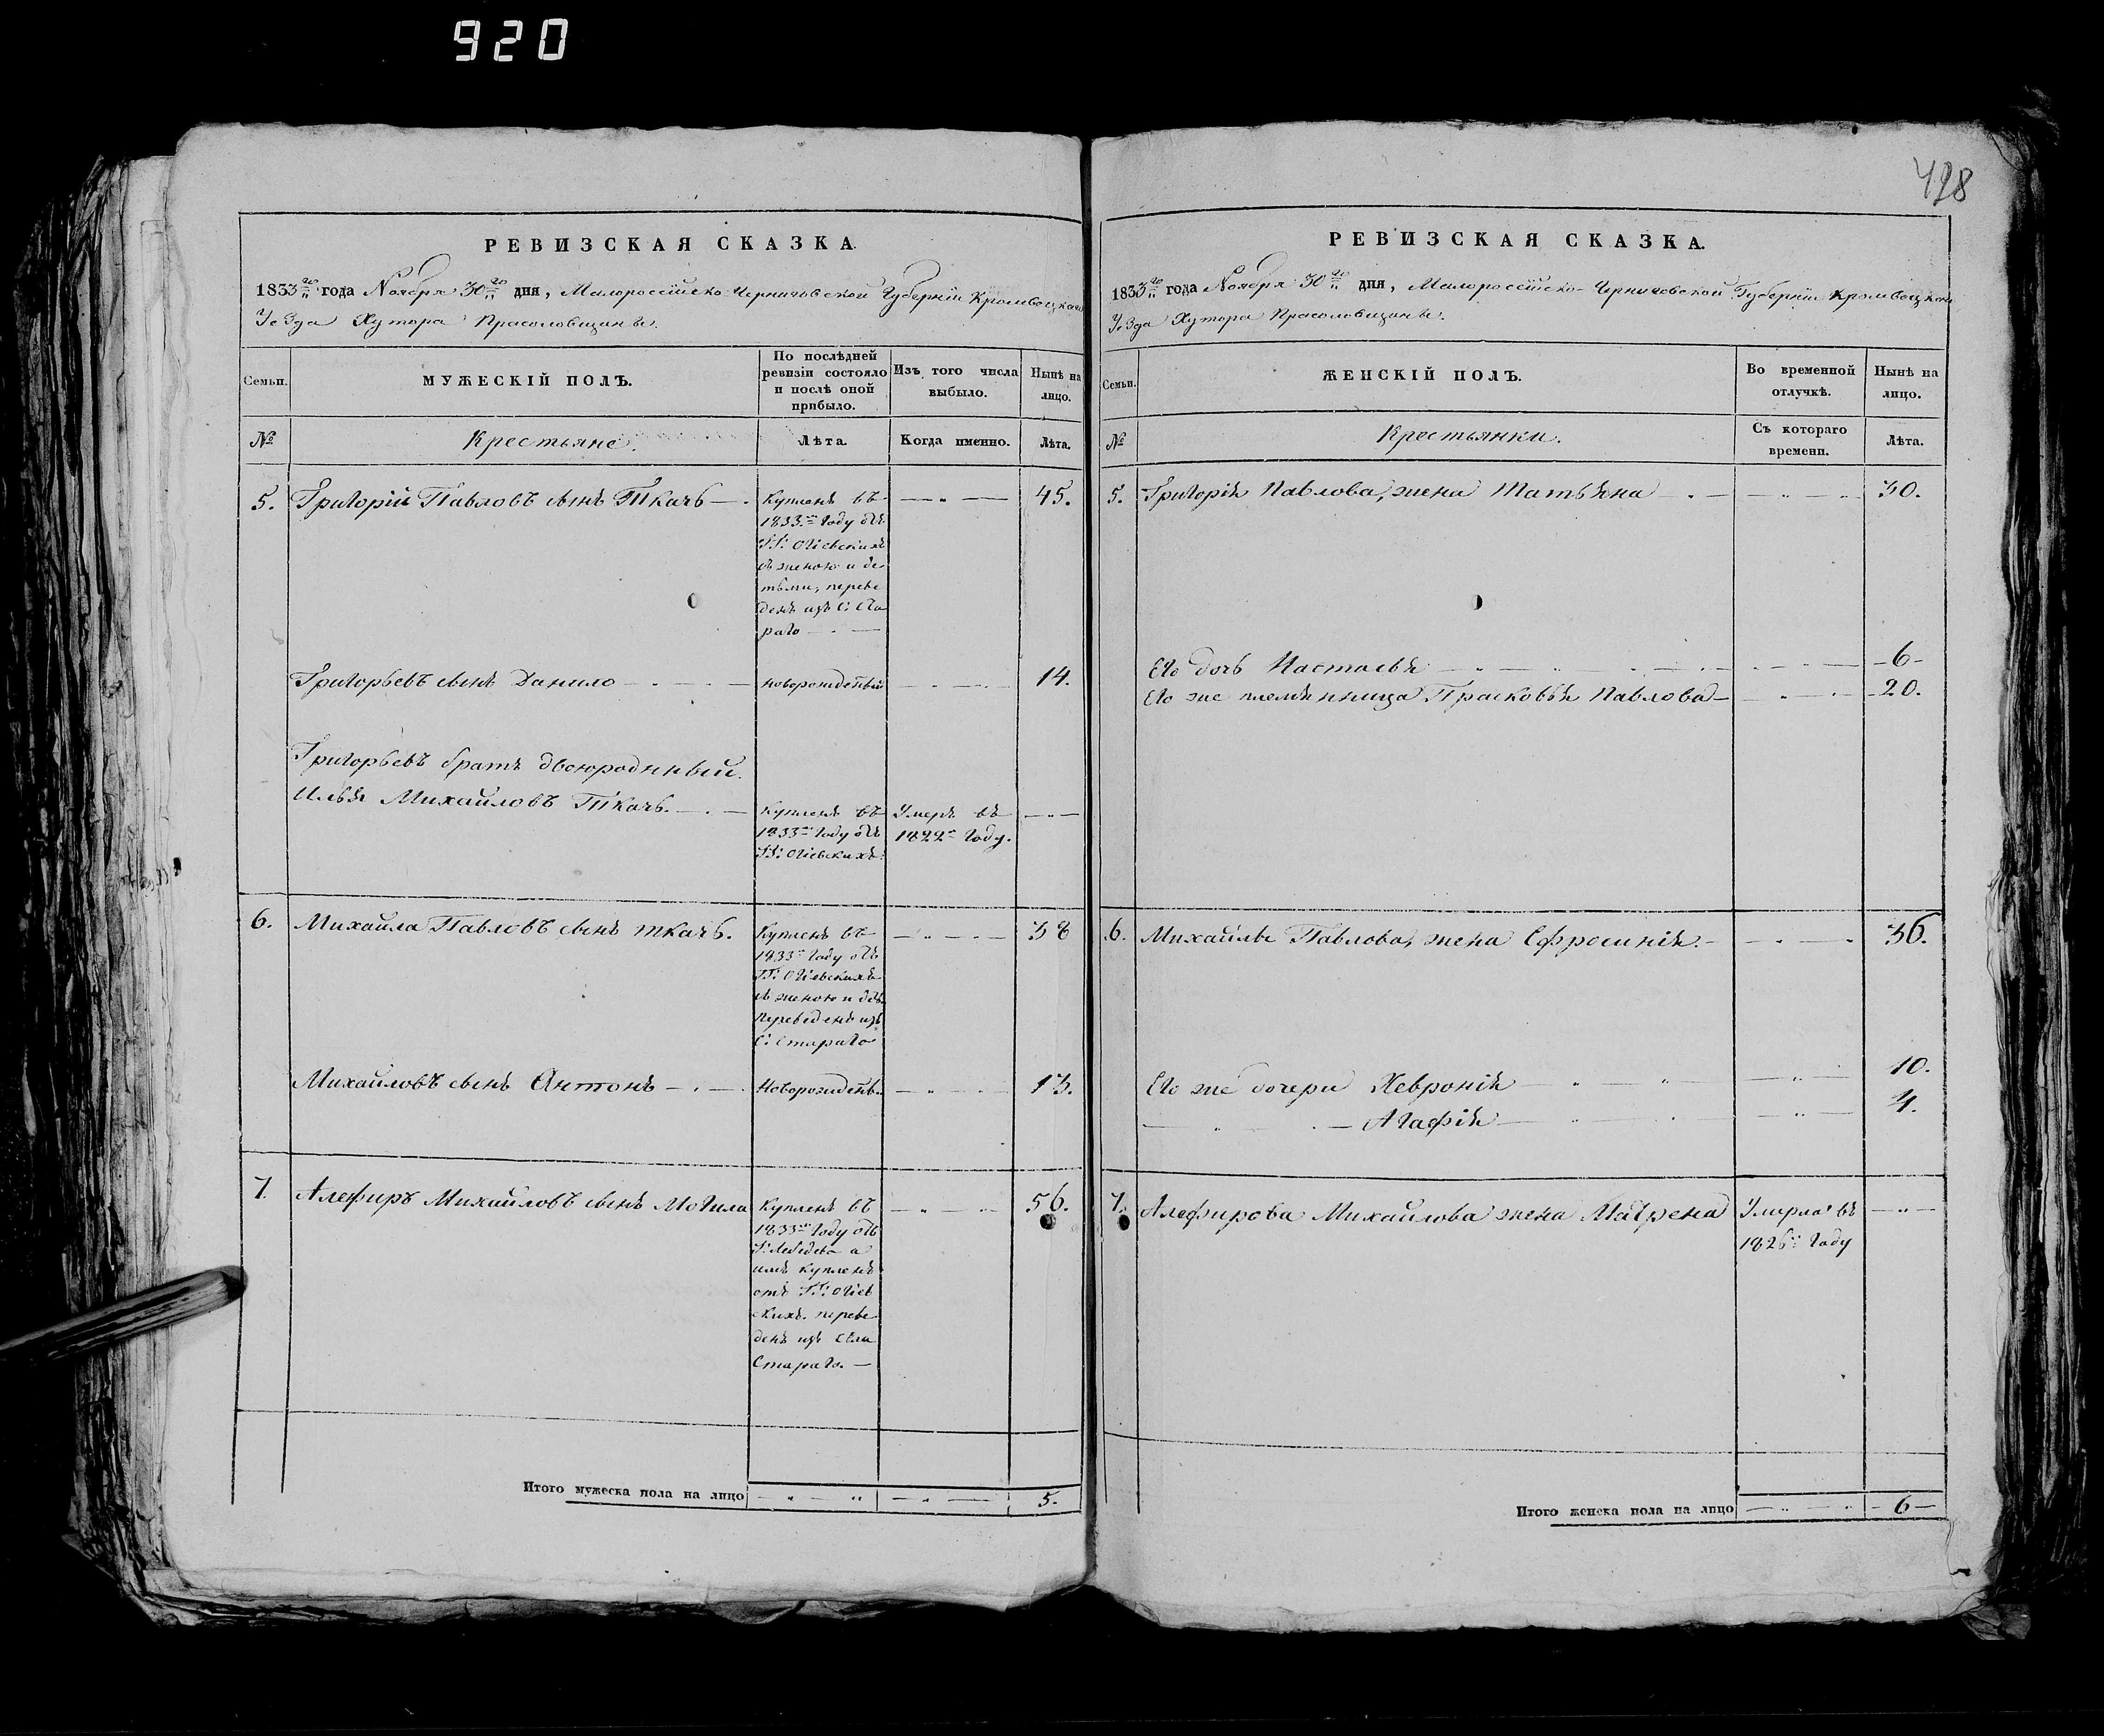 920
498
РЕВИЗСКАЯ СКАЗКА.
1833го года Ноября 30го дня, Малороссійско Черниговской Губерніи Кролевецкаго
Уезда Хутора Прасоловщины.
Семьи.
МУЖЕСКІЙ ПОЛЪ.
По послѣдней ревизіи состояло и послѣ оной прибыло.
Изъ того числа выбыло.
Нынѣ на лицо.
№
Крестьяне.
Лѣта.
Когда именно.
Лѣта.
5. Григорій Павловъ сынъ Ткачь 45.
Купленъ въ
1833м году отъ
ГГ: Огіевскихъ
съ женою и де
тьми, переве
денъ изъ С: Ста
раго
Григорьевъ сынъ Данило новорожденный 14.
Григорьевъ братъ двоюродный
Илья Михайловъ Ткачь.
Купленъ въ
1833м году отъ
ГГ: Огіевскихъ.
Умеръ въ
1822м году.
6. Михайла Павловъ сынъ ткачь. 38
Купленъ въ
1833м году отъ
ГГ: Огіевскихъ
съ женою и дѣт.
переведенъ изъ
С: Стараго
Михайловъ сынъ Антонъ Новорожденъ. 13.
7. Алефиръ Михайловъ сынъ Могила 56.
Купленъ въ
1833м году отъ
Г: Лебедева а
имъ купленъ
отъ ГГ: Огіев
скихъ. переве
денъ изъ села
Стараго.
Итого мужеска пола на лицо 5.
РЕВИЗСКАЯ СКАЗКА.
1833го года Ноября 30го дня, Малороссійско-Черниговской Губерніи Кролевецкого
Уезда Хутора Прасоловщины.
Семьи.
ЖЕНСКІЙ ПОЛЪ.
Во временной отлучкѣ.
Нынѣ на лицо.
№
Крестьянки.
Съ котораго времени.
Лѣта.
5. Григорія Павлова, жена Татьяна 30.
Его дочь Настасья 6
Его же племянница Прасковья Павлова 20.
6. Михайлы Павлова, жена Ефросинія. 36.
Его же дочери Хевронія 10.
Агафія 4.
7. Алефирова Михайлова жена Матрена Умерла въ
1826м году
Итого женска пола на лицо 6